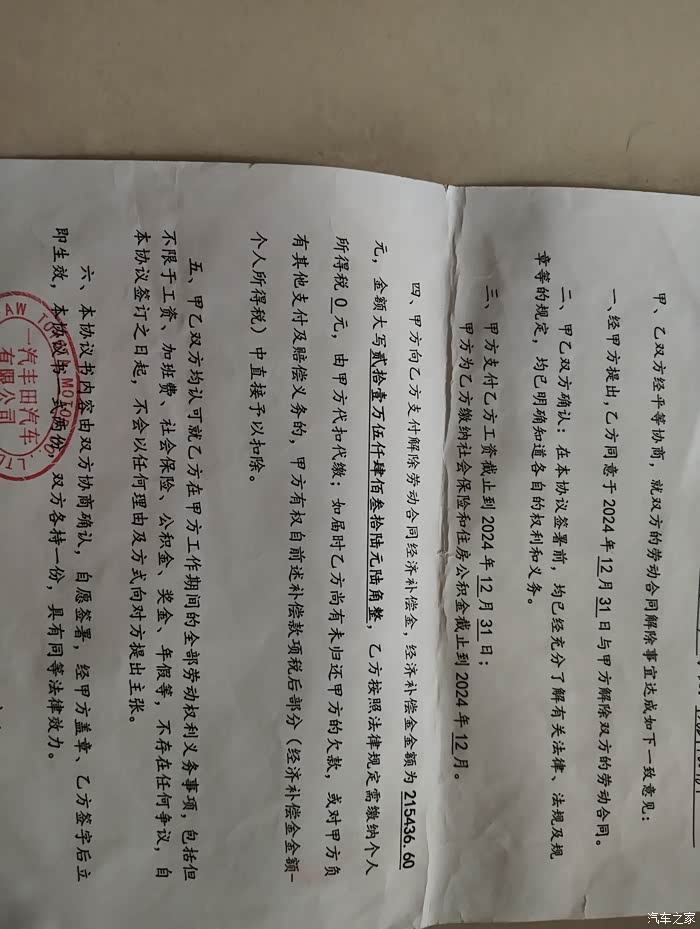 甲、乙双方经平等协商，就双方的劳动合同解除事宜达成如下一致意见：
一、经甲方提出,乙方同意于 2024 年 12 月 31 日与甲方解除双方的劳动合同。
二、甲乙双方确认：在本协议签署前，均已经充分了解有关法律、法规及规
章等的规定，均已明确知道各自的权利和义务。
三、甲方支付乙方工资截止到 2024 年 12 月 31 日；
甲方为乙方缴纳社会保险和住房公积金截止到 2024 年 12 月。
四、甲方向乙方支付解除劳动合同经济补偿金，经济补偿金金额为 215436.60
元，金额大写贰拾壹万伍仟肆佰叁拾陆元陆角整，乙方按照法律规定需缴纳个人
所得税 0 元，由甲方代扣代缴；如届时乙方尚有未归还甲方的欠款，或对甲方负
有其他支付及赔偿义务的，甲方有权自前述补偿款项税后部分（经济补偿金金额-
个人所得税）中直接予以扣除。
五、甲乙双方均认可就乙方在甲方工作期间的全部劳动权利义务事项，包括但
不限于工资、加班费、社会保险、公积金、奖金、年假等，不存在任何争议，自
本协议签订之日起，不会以任何理由及方式向对方提出主张。
六、本协议书内容由双方协商确认，自愿签署，经甲方盖章、乙方签字后立
即生效，本协议书一式两份，双方各持一份，具有同等法律效力。
一汽丰田汽车
有限公司
汽车之家